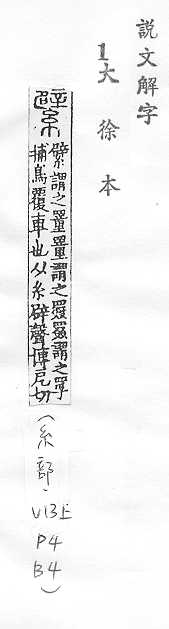 説文解字
1大徐本
繴
繴謂之罿罿謂之罬罬謂之罦
捕鳥覆車也从糸辟聲博戹切
(糸部.
V13上
P4
B4)